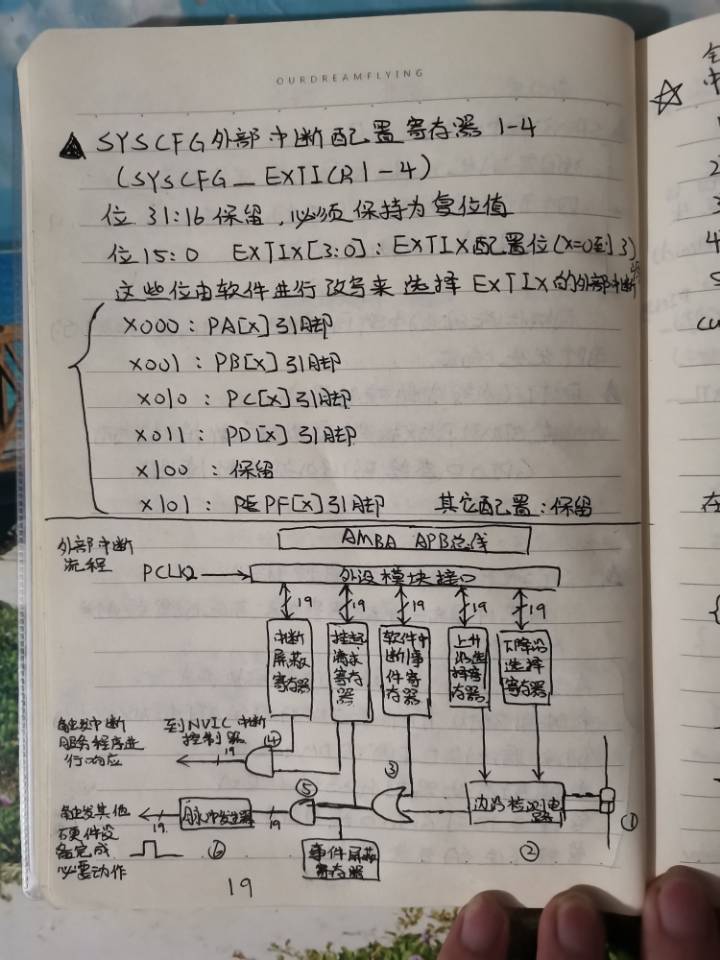 OURDREAMFLYING
▲ SYSCFG外部中断配置寄存器 1-4
(SYSCFG_EXTICR1-4)
位 31:16 保留,必须保持为复位值
位15:0 EXTIX[3:0]:EXTIX配置位(X=0到3)
这些位由软件进行改写来选择EXTIX的外部中断
X000:PA[X]引脚
X001:PB[X]引脚
X010:PC[X]引脚
X011:PD[X]引脚
X100:保留
X101:PF[X]引脚 其它配置:保留
外部中断
流程
AMBA APB总线
PCLK2
外设模块接口
19 19 19 19 19
中断
屏蔽
寄存器
挂起
请求
寄存
器
软件中
断/事
件寄
存器
上升
沿选
择寄
存器
下降沿
选择
寄存器
触发中断
服务程序进
行响应
到NVIC中断
控制器
19
④
③
⑤
触发其他
硬件设
备完成
必要动作
19
脉冲发生器
19
⑥
边沿检测电
路
②
①
事件屏蔽
寄存器
19
☆
2
3
4
5
在